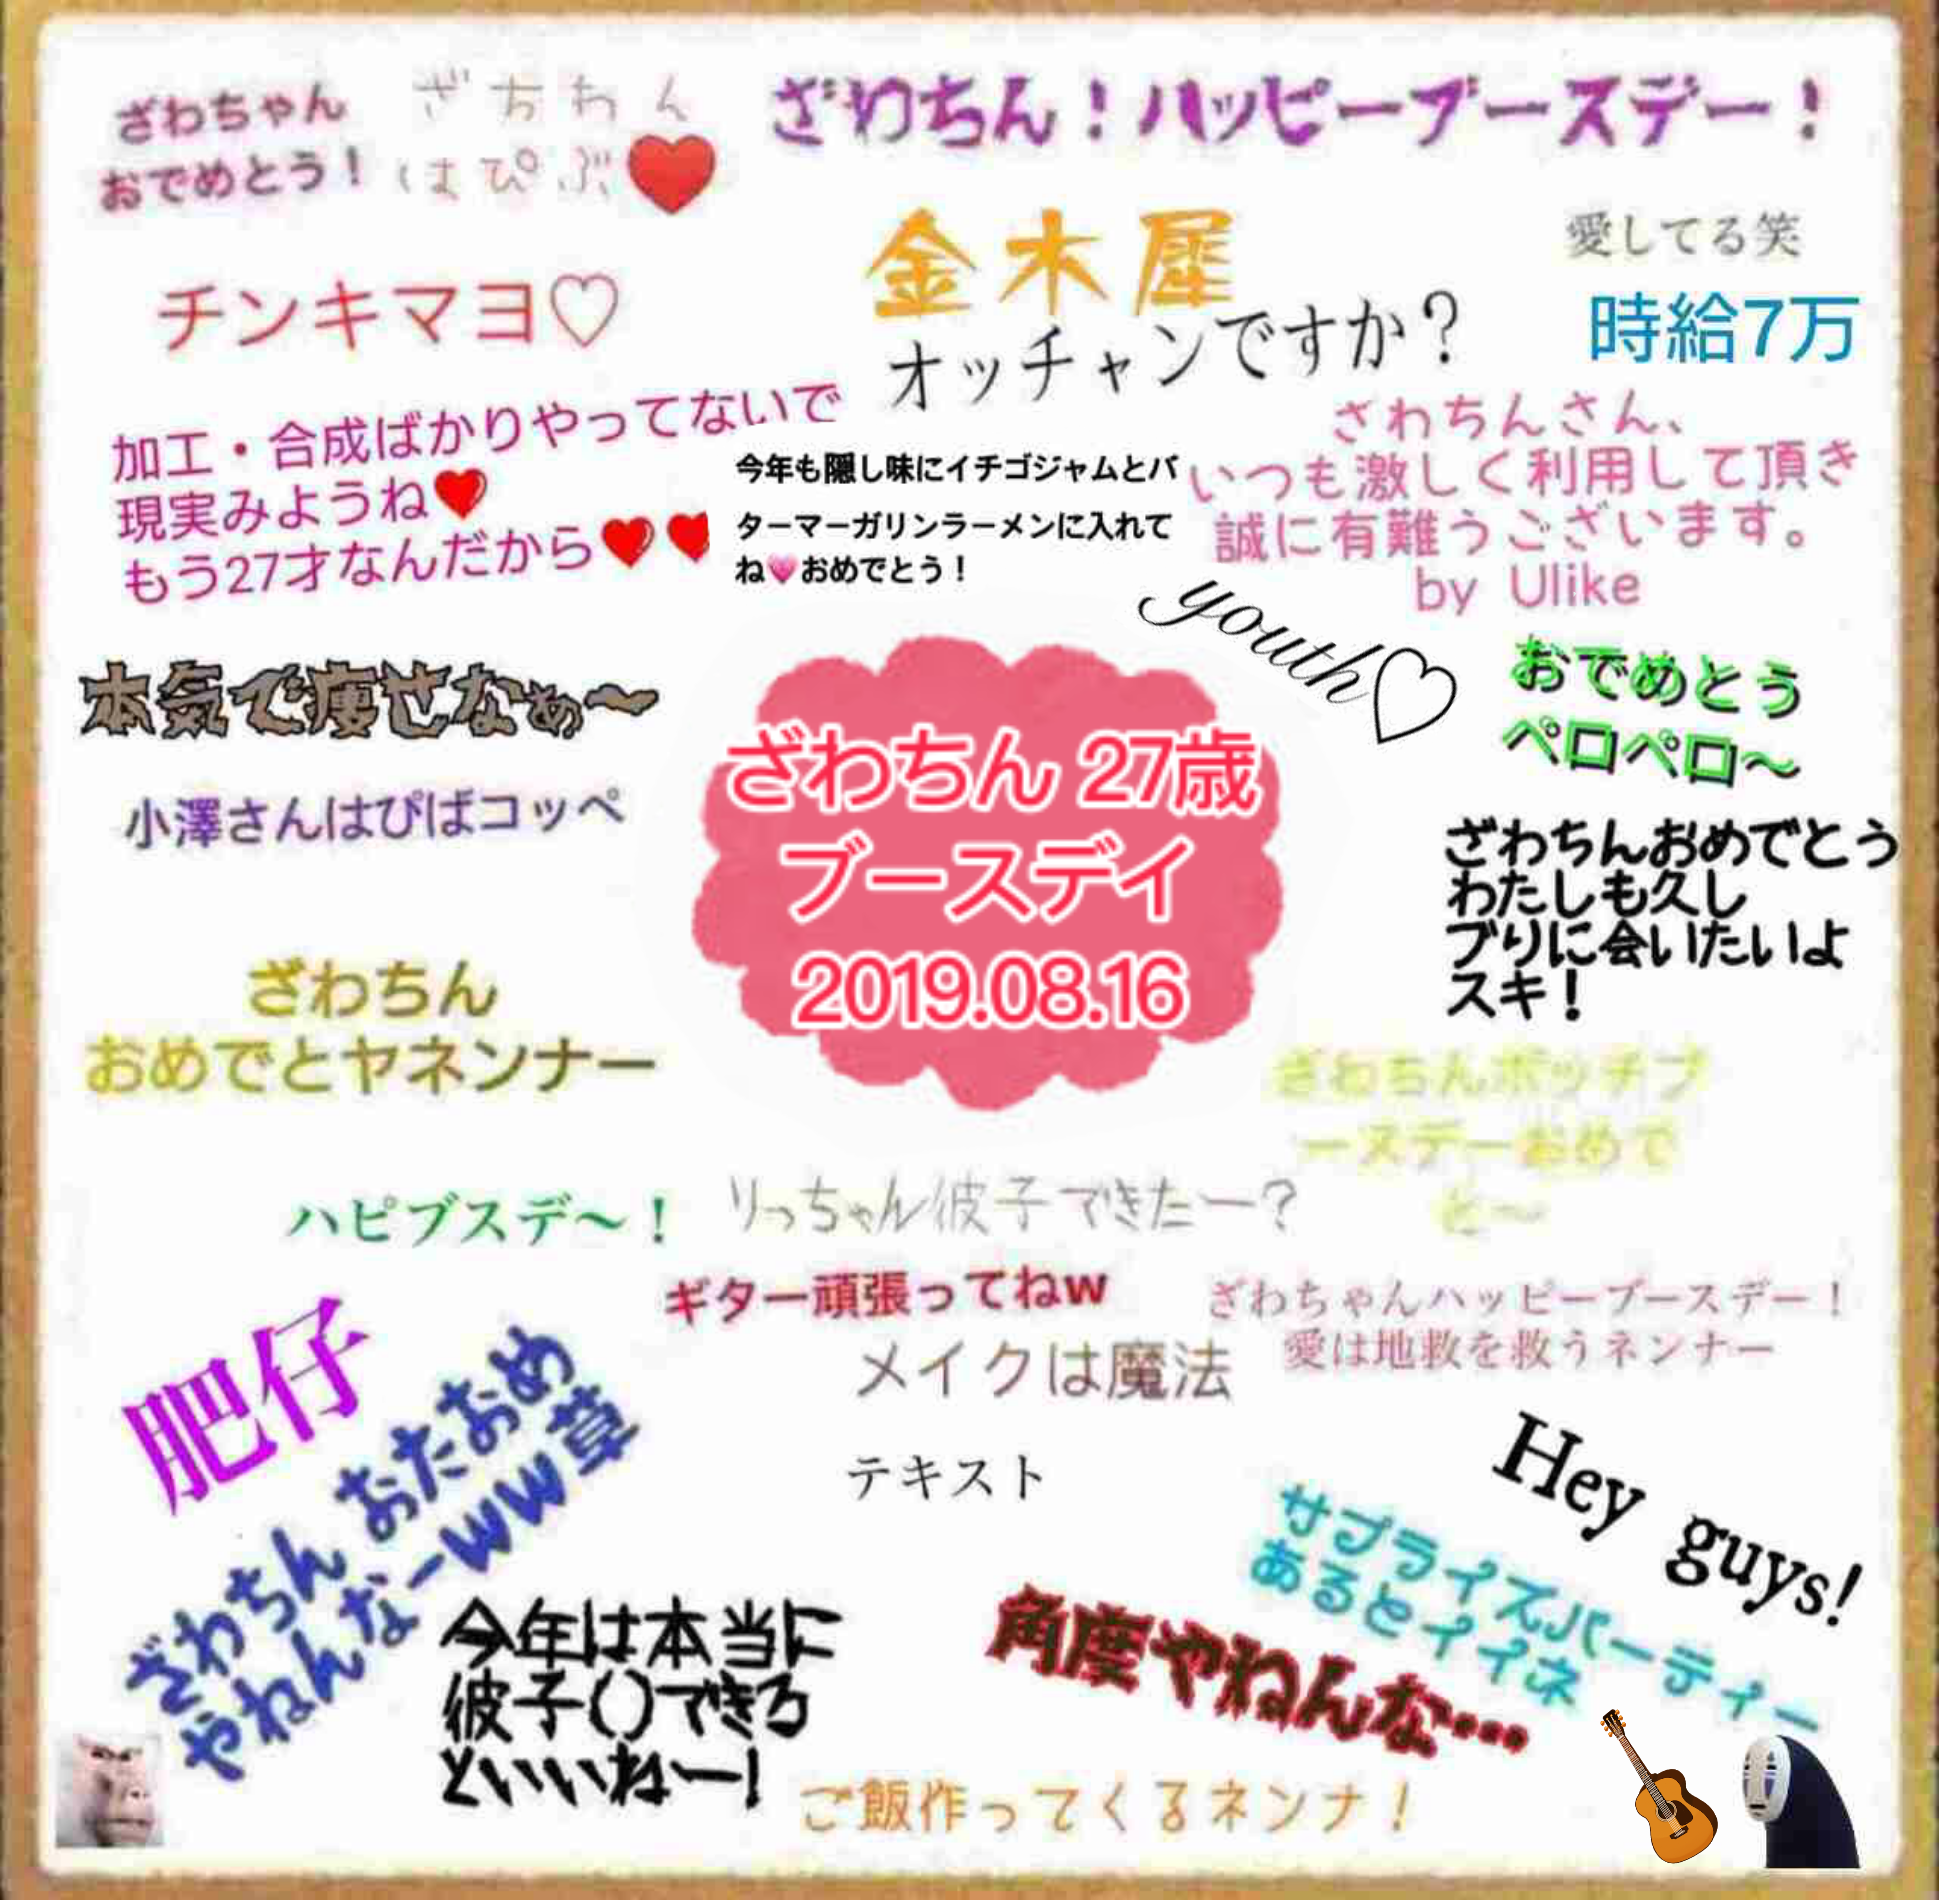 ざわちゃん
おでめとう！
ざちわん
はぴぶ
ざわちん！ハッピーブースデー！
金木犀
愛してる笑
チンキマヨ♡
オッチャンですか？
時給7万
加工・合成ばかりやってないで
現実みようね
もう27才なんだから
今年も隠し味にイチゴジャムとバ
ターマーガリンラーメンに入れて
ね💗おめでとう！
ざわちんさん、
いつも激しく利用して頂き
誠に有難うございます。
by Ulike
youth♡
おでめとう
ペロペロ〜
本気で痩せなぁ〜
小澤さんはぴばコッペ
ざわちん 27歳
ブースデイ
2019.08.16
ざわちんおめでとう
わたしも久し
ブりに会いたいよ
スキ！
ざわちん
おめでとヤネンナー
ざわちんボッチブ
ースデーおめで
と〜
ハピブスデ〜！
りっちゃん彼子できたー？
ギター頑張ってねw
ざわちゃんハッピーブースデー！
愛は地救を救うネンナー
メイクは魔法
肥仔
ざわちん おたおめ
やねんなーww草
テキスト
Hey guys!
サプライズパーティー
あるとイイネ
今年は本当に
彼子()できろ
といいねー！
角度やねんな…
ご飯作ってくるネンナ！